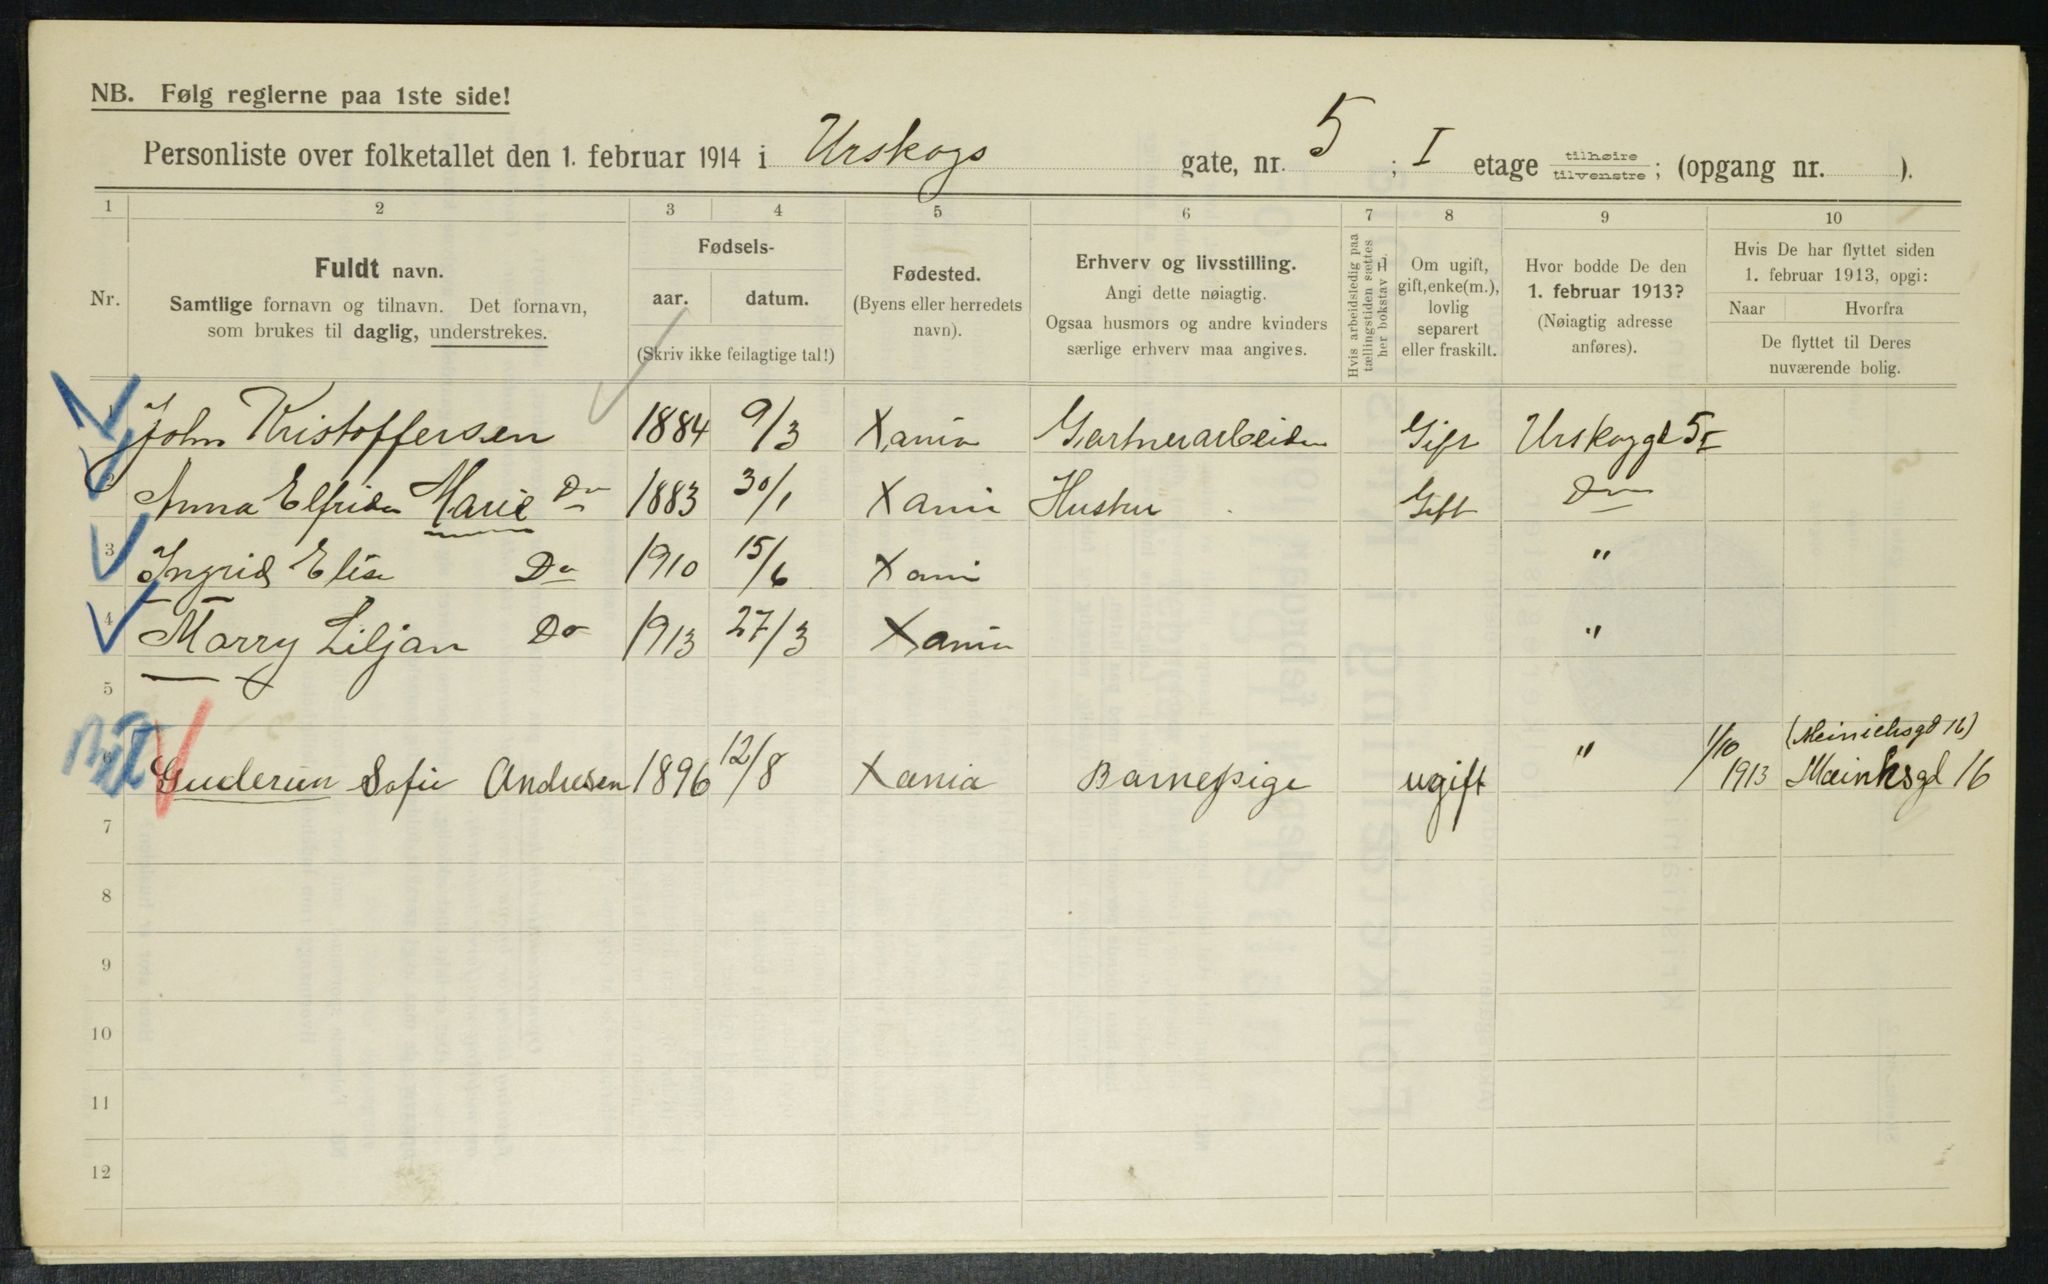 NB. Følg reglerne paa 1ste side!
Personliste over folketallet den 1. februar 1914 i Urskogs gate, nr. 5 ; I etage tilhøire tilvenstre ; (opgang nr. ).
1 2 3 4 5 6 7 8 9 10
Nr.
Fuldt navn.
Samtlige fornavn og tilnavn. Det fornavn,
som brukes til daglig, understrekes.
Fødsels-
aar. datum.
(Skriv ikke feilagtige tal!)
Fødested.
(Byens eller herredets
navn).
Erhverv og livsstilling.
Angi dette nøiagtig.
Ogsaa husmors og andre kvinders
særlige erhverv maa angives.
Hvis arbeidsledig paa
tællingstiden sættes
her bokstav L
Om ugift,
gift, enke(m.),
lovlig
separert
eller fraskilt.
Hvor bodde De den
1. februar 1913?
(Nøiagtig adresse
anføres).
Hvis De har flyttet siden
1. februar 1913, opgi:
Naar Hvorfra
De flyttet til Deres
nuværende bolig.
1 John Kristoffersen 1884 9/3 Xania Gartnerarbeider Gift Urskoggd 5 I
2 Anna Elfrida Marie Do 1883 30/1 Xania Hustru Gift Do
3 Ingrid Elise Do 1910 15/6 Xania "
4 Marry Liljan Do 1913 27/3 Xania "
5
(Meinichsgd 16)
6 Guderun Sofie Andresen 1896 12/8 Xania Barnepige ugift " 1/10 1913 Mainksgd 16
7
8
9
10
11
12